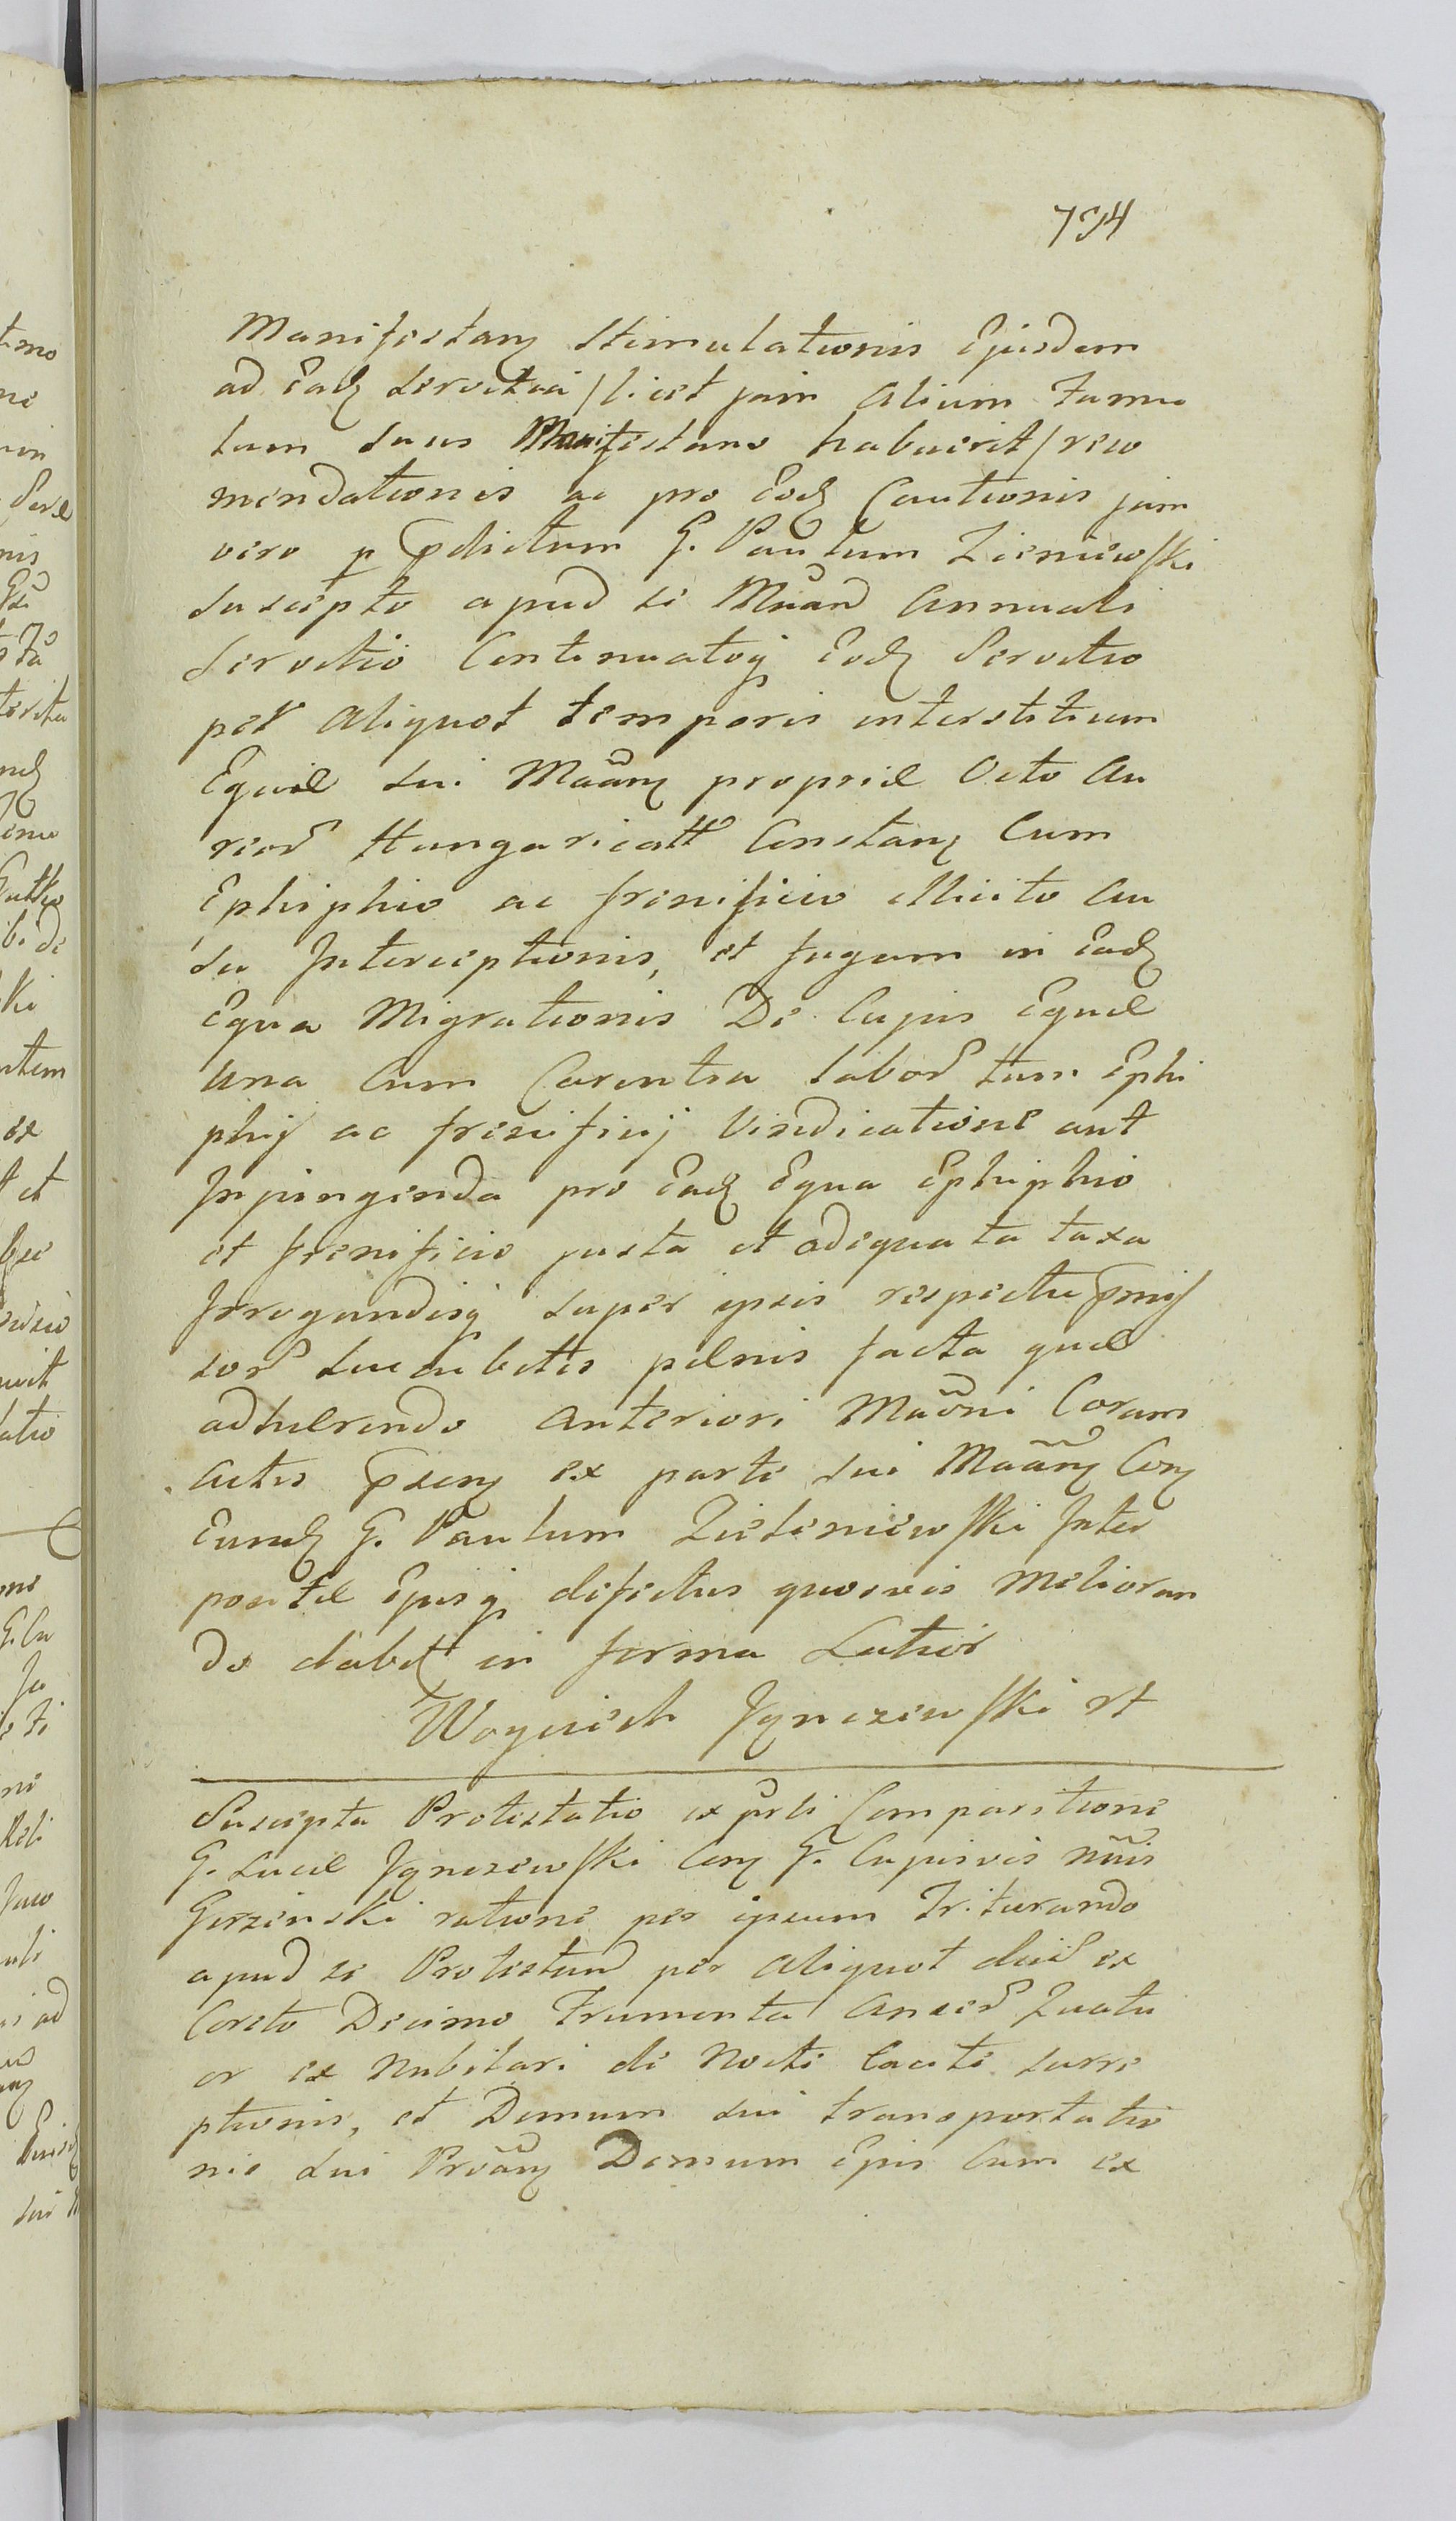 794
Manifestanz Stimulationis Ejusdem
ad Eadz servitia / licet jam Alium Famu
lum suus Manifestans habuerit / reco
mendationis ac pro Eodz Cautionis jam
vero p pdictum G. Paulum Zieniewski
suscepto apud se Mnand Annuali
servitio Continuatoq Eodz Servitio
per aliquot temporis interstitium
Equæ sui Maanz propriæ Octo Au
reor Hungaricall Constanz Cum
Ephiphio ac frenificio illicito Au
su Interceptionis, et fugam in Eadz
Equa Migrationis De Cujus Equæ
una Cum Carentia labor tum Ephi
phij ac frenificij Vindicatione aut
Inpingenda pro Eadz Equa Ephiphio
et frenificio justa et adequata taxa
Irrogandisq super ipsis respectu pmis
sor succubitis pænis facta quæ
adhærendo Anteriori Maõni Coram
Actis psenz ex parte sui Maanz Conz
Eundz G. Paulum Zieleniewski Inter
positæ Ejusq defectus quosvis melioran
do dabit in forma Latior
Woyciech Jgnczewski rt
Suscepta Protestatio ex prti Comparitione
G. Lucæ Jgnczewski Conz G. Cujusvis nñis
Gorzinski ratione per ipsum Triturando
apud se Protestand per aliquot dies ex
Coreto Decimo Frumenta Anser Quatu
or ex Nubilari de Nocte Caute surre
ptionis, et Domum sui transportatio
nis sui Prõanz Domum Ejus Cum ex